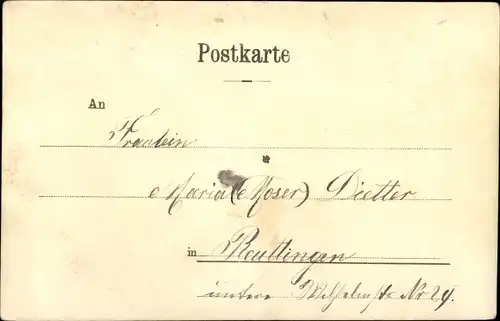 Postkarte
An
Fräulein
Maria (Moser) Dietter
in Reutlingen
untere Wilhelmstr Nr 29.